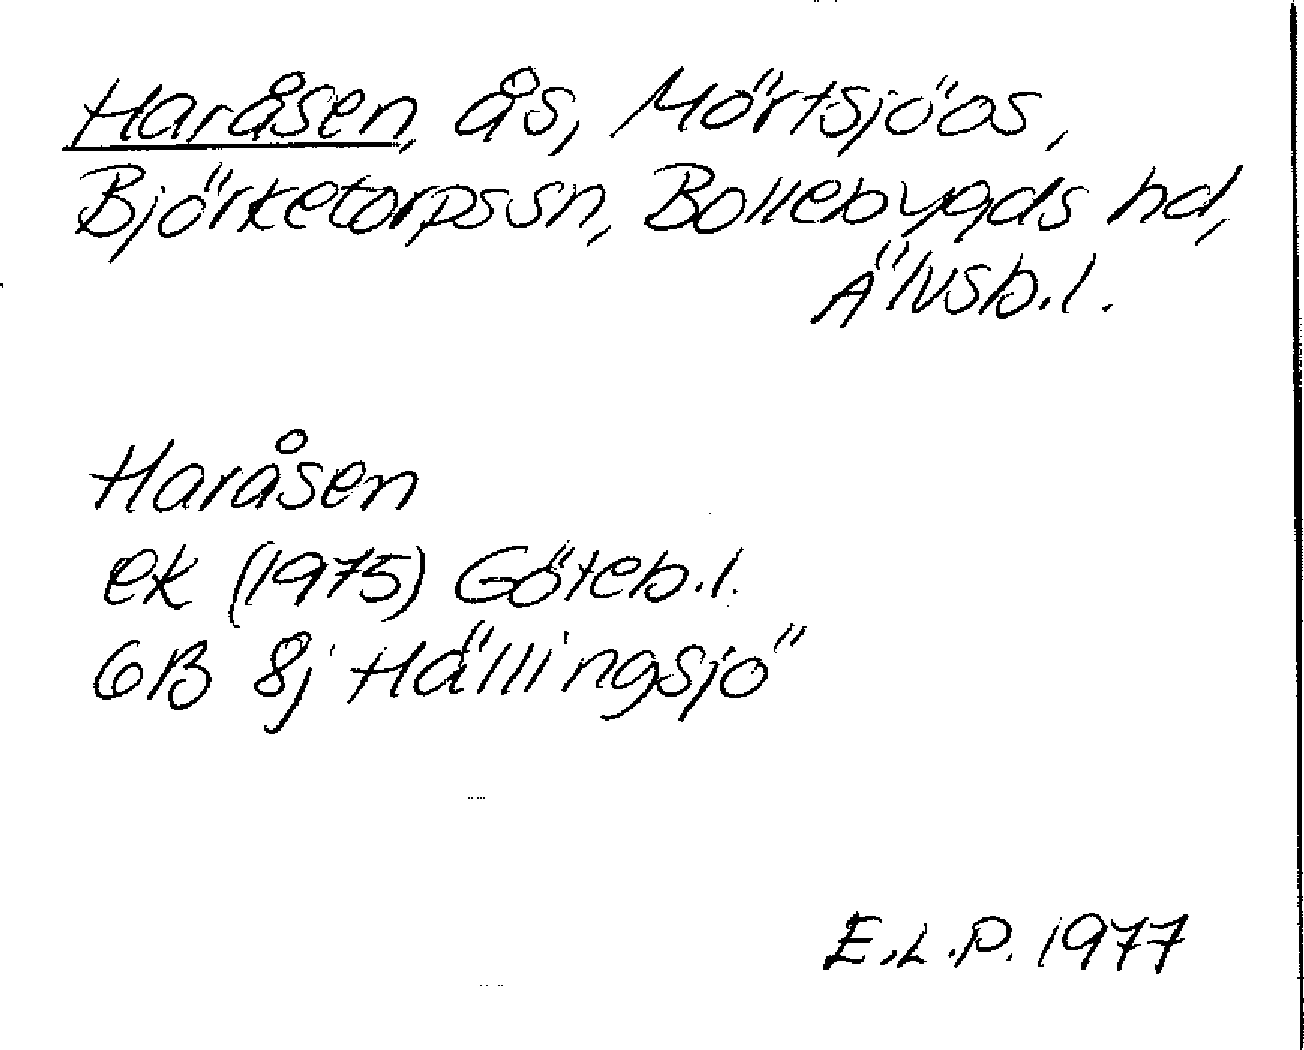 Haråsen, ås, Mörtsjöås,
Björketorps sn, Bollebygds hd,
Älvsb.l.
Haråsen
ek (1975) Göteb.l.
6B 8j Hällingsjö
E.L.P. 1977